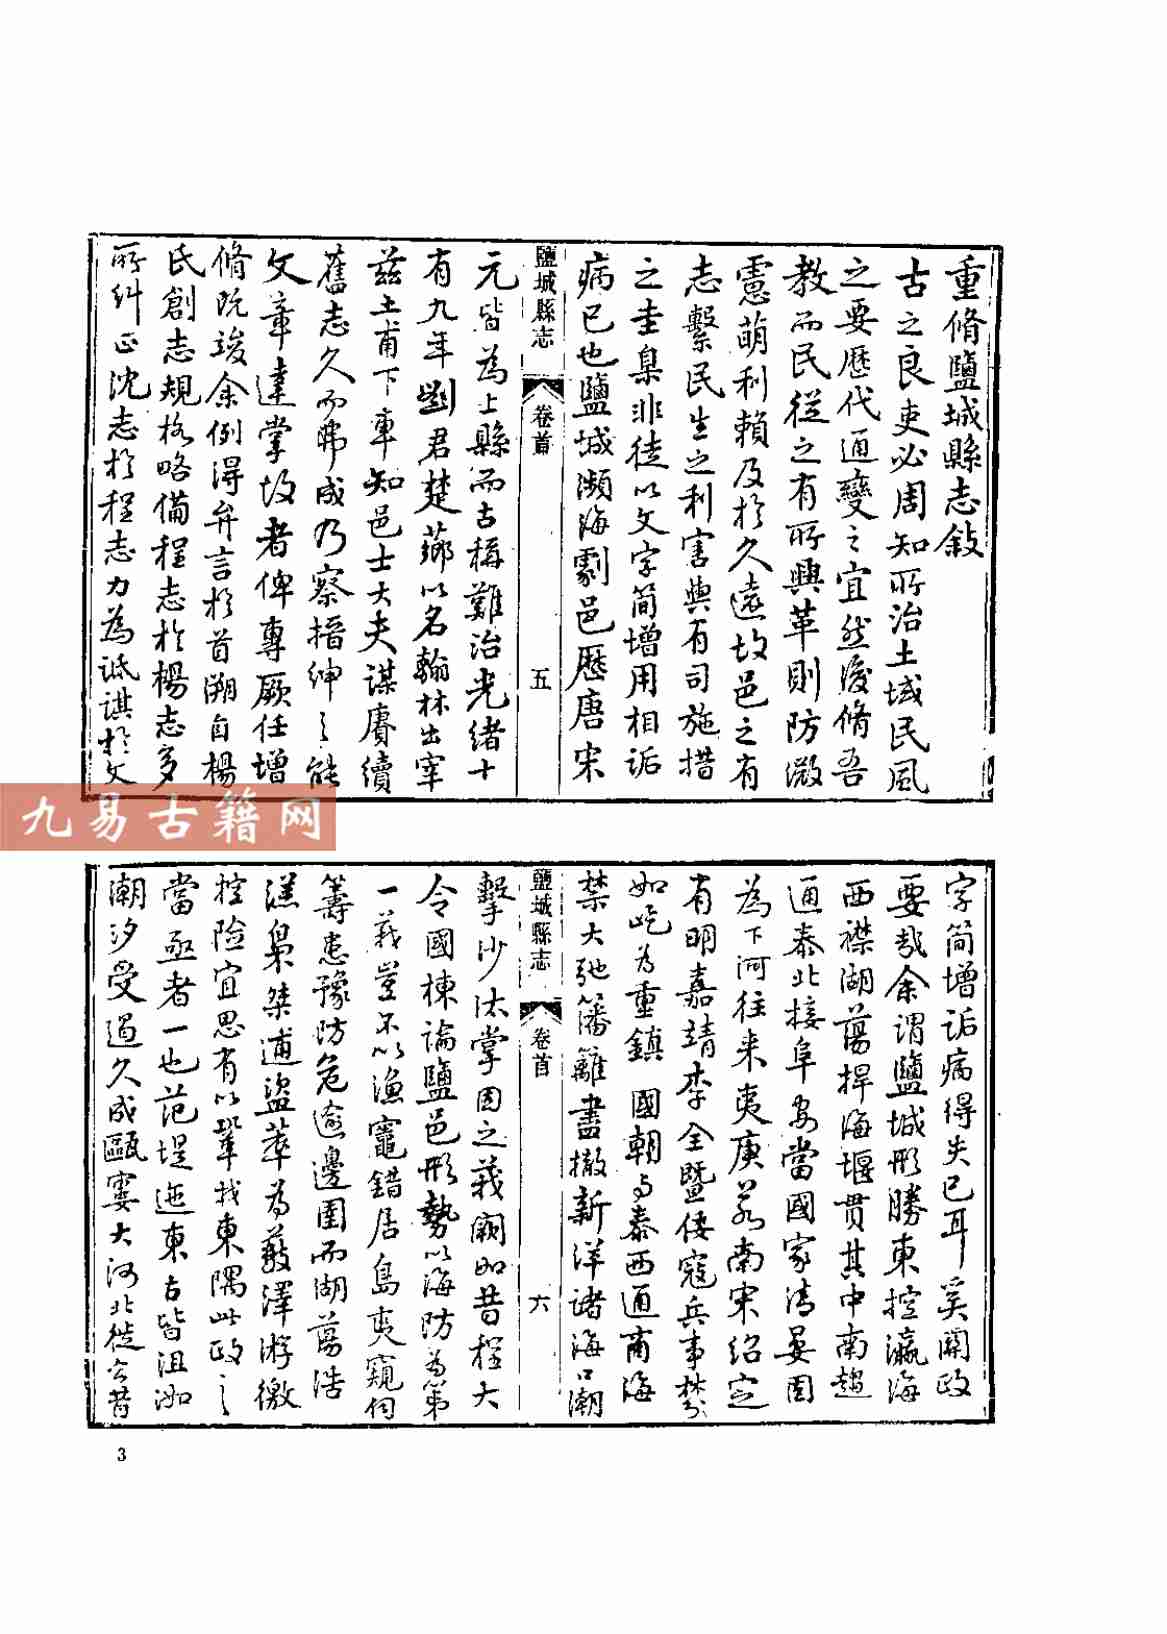 重脩鹽城縣志敘
古之良吏必周知所治土域民風
之要歷代通變之宜然後脩吾
教而民從之有所興革則防微
慮萌利賴及於久遠故邑之有
志繫民生之利害與有司施措
之圭臬非徒以文字簡增用相詬
病已也鹽城瀕海劇邑歷唐宋
鹽城縣志
卷首
五
元皆為上縣而古稱難治光緒十
有九年劉君楚薌以名翰林出宰
茲土甫下車知邑士大夫謀賡續
舊志久而弗成乃察搢紳之能
文章達掌故者俾專厥任增
脩既竣余例得弁言於首溯自楊
氏創志規格略備程志於楊志多
所糾正沈志於程志力為詆諆於文
字簡增詬病得失已耳奚關政
要哉余謂鹽城形勝東控瀛海
西襟湖蕩捍海堰貫其中南趨
通泰北接阜安當國家清晏固
為下河往來夷庚若南宋紹定
有明嘉靖李全暨倭寇兵事棼
如屹為重鎮國朝與泰西通商海
禁大弛籓籬盡撤新洋諸海口潮
鹽城縣志
卷首
六
擊沙汰掌固之義闕如昔程大
令國棟論鹽邑形勢以海防為第
一義豈不以漁竈錯居島夷窺伺
籌患豫防危逾邊圉而湖蕩浩
淼梟桀逋盜萃為藪澤游徼
控險宜思有以鞏我東隅此政之
當亟者一也范堤迤東古皆沮洳
潮汐受遏久成甌窶大河北徙云昔
3
九易古籍网